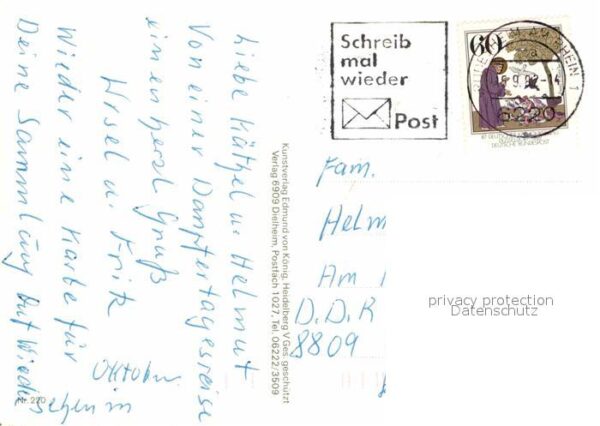 Liebe Kätzel u. Helmut
Von einer Dampfertagesreise
einen herzl Gruß
Ursel u. Fritz
Wieder eine Karte für
Deine Sammlung Auf Wieder
sehen im
Oktober
Nr. 220
Kunstverlag Edmund von König, Heidelberg V Ges. geschützt
Verlag 6909 Dielheim, Postfach 1027, Tel. 06222/3509
Schreib
mal
wieder
Post
60
DEUTSCHE BUNDESPOST
AM RHEIN 1
6220
Fam.
Helm
Am
D.D.R
8809
privacy protection
Datenschutz